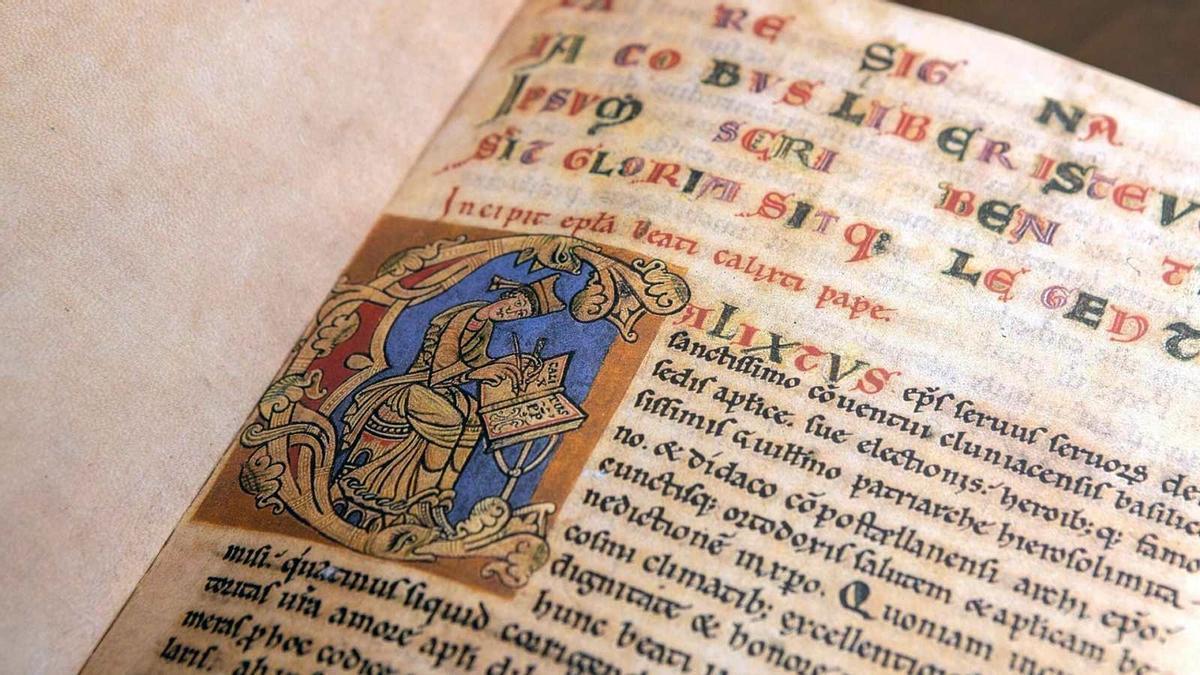 RE SIG NA
IA COBVS LIBER ISTEV
Ipsum SCRI BEN T
SIT GLORIA SITQ; LE GEN T
Incipit epła beati calixti pape.
ALIXTVS ep̃s seruus seruoꝝ dei
sanctissimo cõuentui cluniacensis basilice
sedis aplice. sue electionis. heroib;q; famo
sissimis Guillmo patriarche hierosolimita
no. & didaco cõpostellanensi archi ep̃o.
cunctisq; ortodoxis salutem & aplicam be
nedictionẽ in xpo. Quoniam in
cosmi climatib; excellentior
dignitate & honore
hunc beati
misi. quatinus siquid corrigen
toritas ur̃a amore apli
meras p hoc codice
laris. ab